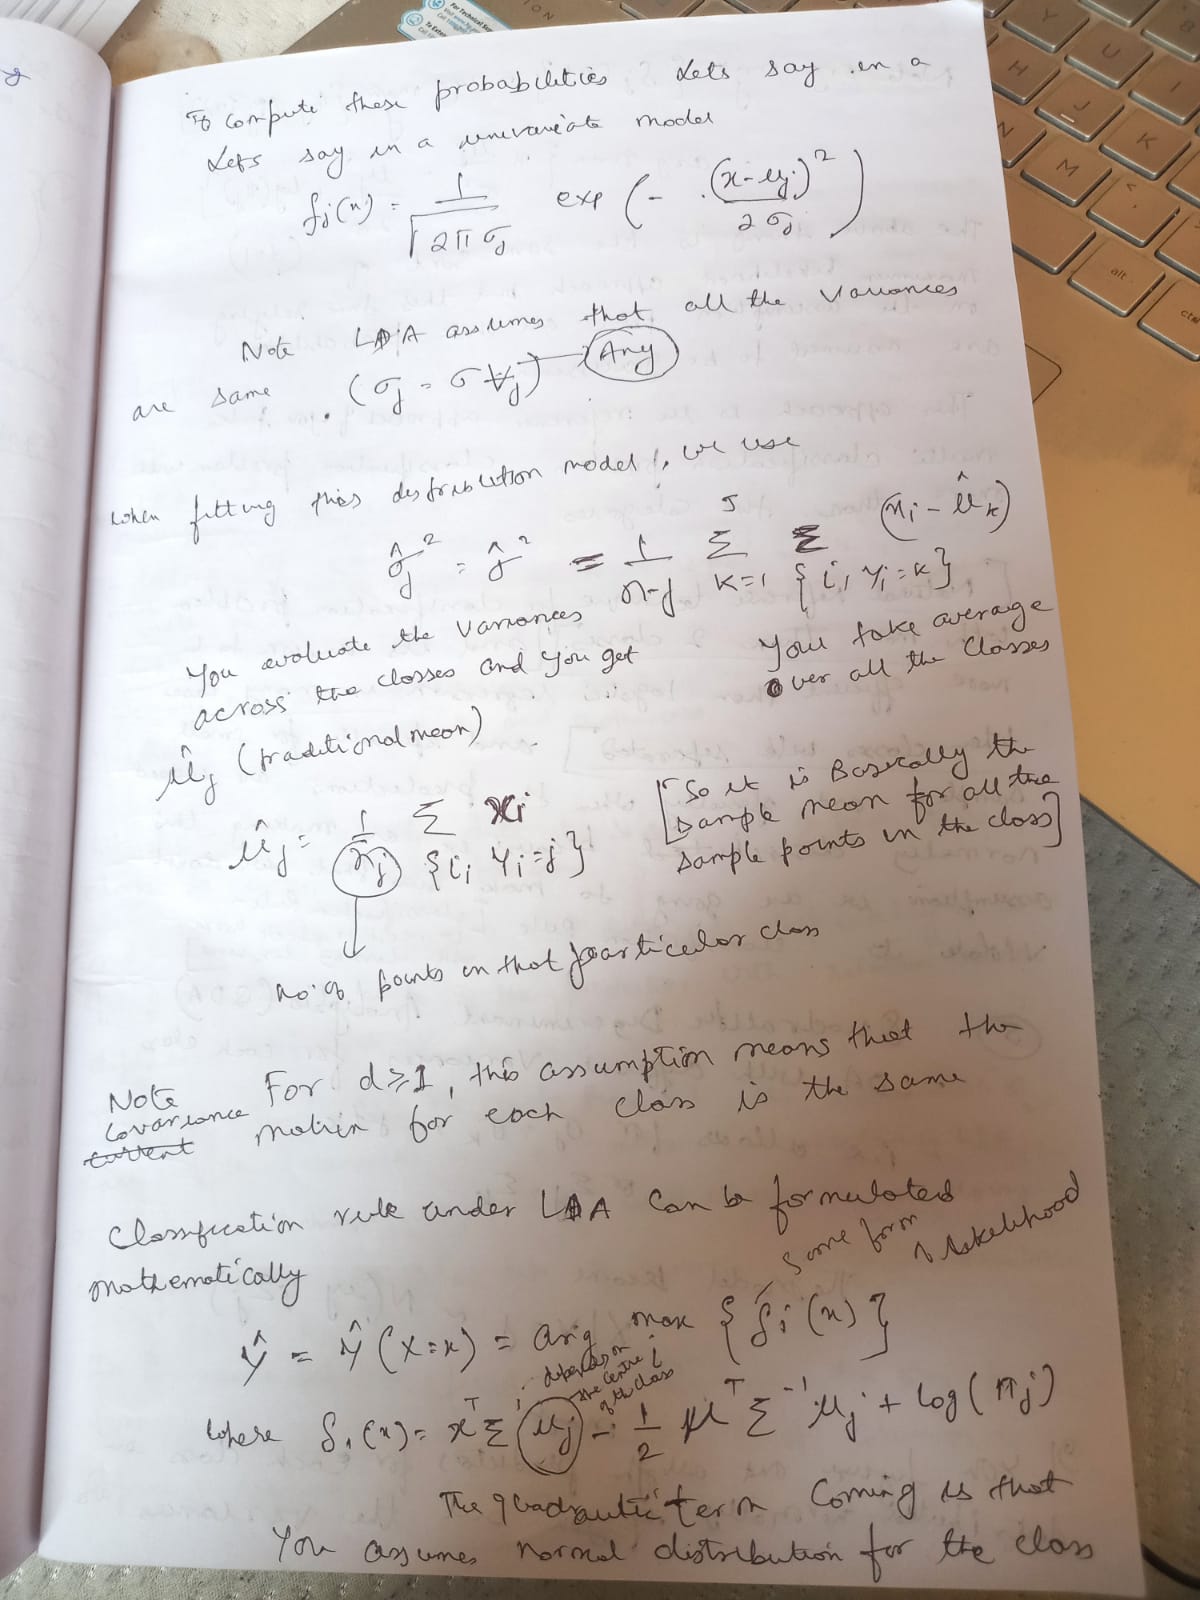 For Technical
To compute these probabilities Lets say in a
Lets say in a univariate model
fj(x) = 1/√2π σj exp (- (x-μj)²/2σj)
Note LDA assumes that all the Variances
are same (σj = σ ∀j) → Any
when fitting this distribution model, we use
σ̂j² = σ̂² = 1/n-J Σ(k=1 to J) Σ{i, yi=k} (xi - μ̂k)
You evaluate the Variances
across the classes and you get
You take average
over all the Classes
μ̂j (traditional mean)
μ̂j = 1/nj Σ{i; yi=j} xi
[So it is Basically the
sample mean for all the
sample points in the class]
no: of points in that particular class
Note For d≥1, this assumption means that the
Covariance matrix for each class is the same
current
Classification rule under LDA Can be formulated
mathematically
some form
of likelihood
ŷ = ŷ(X=x) = arg max {δi(x)}
i
depends on
the centre
of the class
where δi(x) = xᵀΣ⁻¹μj - 1/2 μᵀΣ⁻¹μj + log(πj)
The quadrautic term Coming is that
You assumes normal distribution for the class